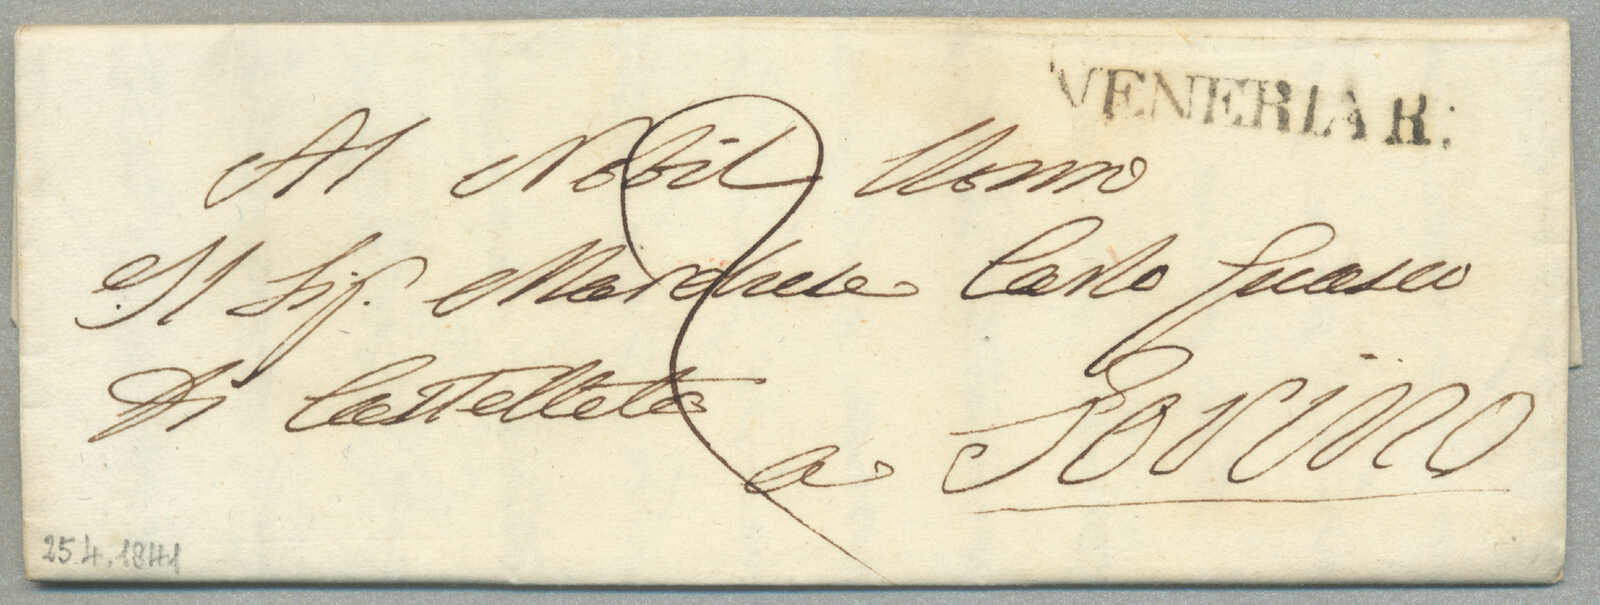 VENERIA R:
Al Nobil Uomo
Il Sig. Marchese Carlo Guasco
Di Castelletto
a Torino
25.4.1841